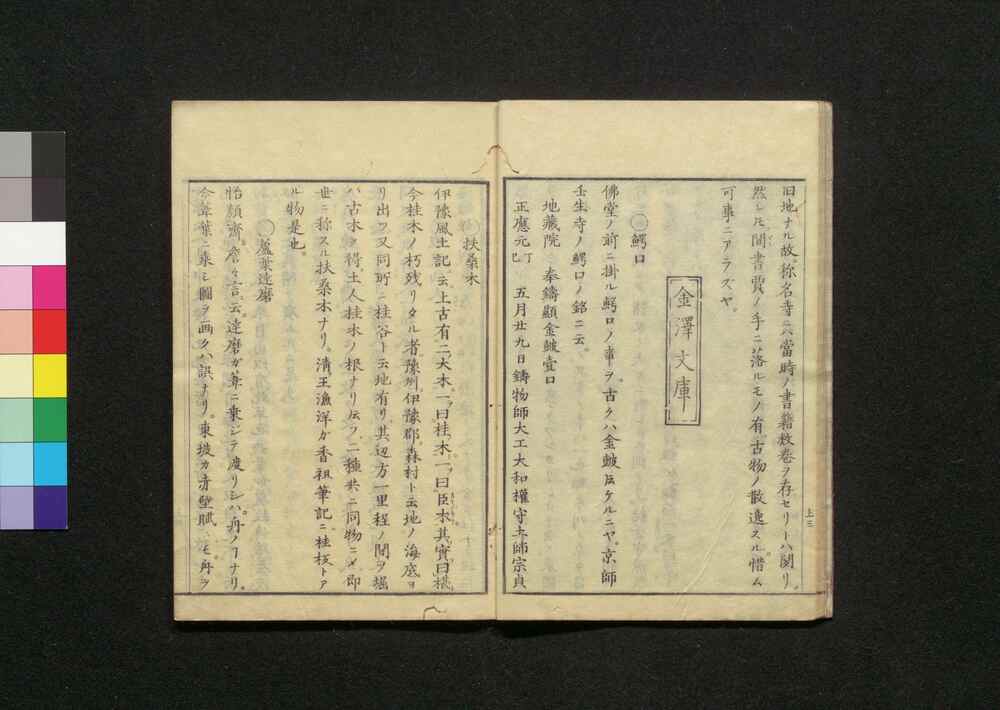 旧地ナル故、称名寺ニ當時ノ書籍数巻ヲ存セリトハ聞リ。
然レ𪜈間書賈ノ手ニ落ルモノ有。古物ノ散逸スル。惜ム
可事ニアラズヤ。
金澤文庫
◯鰐口
佛堂ノ前ニ掛ル鰐口ノ事ヲ。古クハ金皷𪜈云ケルニヤ。京師
壬生寺ノ鰐口ノ銘ニ云
地藏院 奉鑄顯金皷壹口
正應元丁巳 五月廿九日鑄物師大工大和權守土師宗貞
上三
◯扶桑木
伊豫風土記ニ云上古有二大木。一ヲ曰桂木一ヲ曰臣木其實曰橡。
今桂木ノ朽残リタル者。豫州伊豫郡森村ト云地ノ海底ヨ
リ出ツ又同所ニ桂谷ト云地有リ其辺方一里程ノ間ヲ堀
ハ古木ヲ得。土人桂木ノ根ナリト云フ。二種共ニ同物ニ〆即
世ニ称スル扶桑木ナリ。清王漁洋ガ香祖筆記ニ桂枝トア
ル物是也。
◯蘆葉達磨
怡顔齋。詹々言ニ云。達磨ガ葦ニ乗ジテ渡リシハ。舟ノヿナリ。
今葦葉ニ乗シ圖ヲ画クハ誤ナリ。東坡カ赤壁賦ニモ舟ヲ